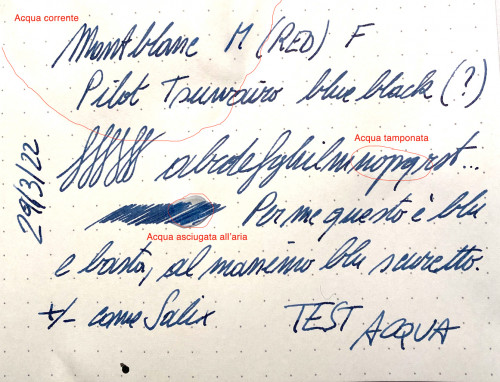 Acqua corrente
Montblanc M (RED) F
Pilot Tsuwairo blue black (?)
Acqua tamponata
abcdefghilmnopqrst...
29/3/22
Acqua asciugata all'aria
Per me questo è blu
e basta, al massimo blu scuretto.
+/- come Salix
TEST ACQUA